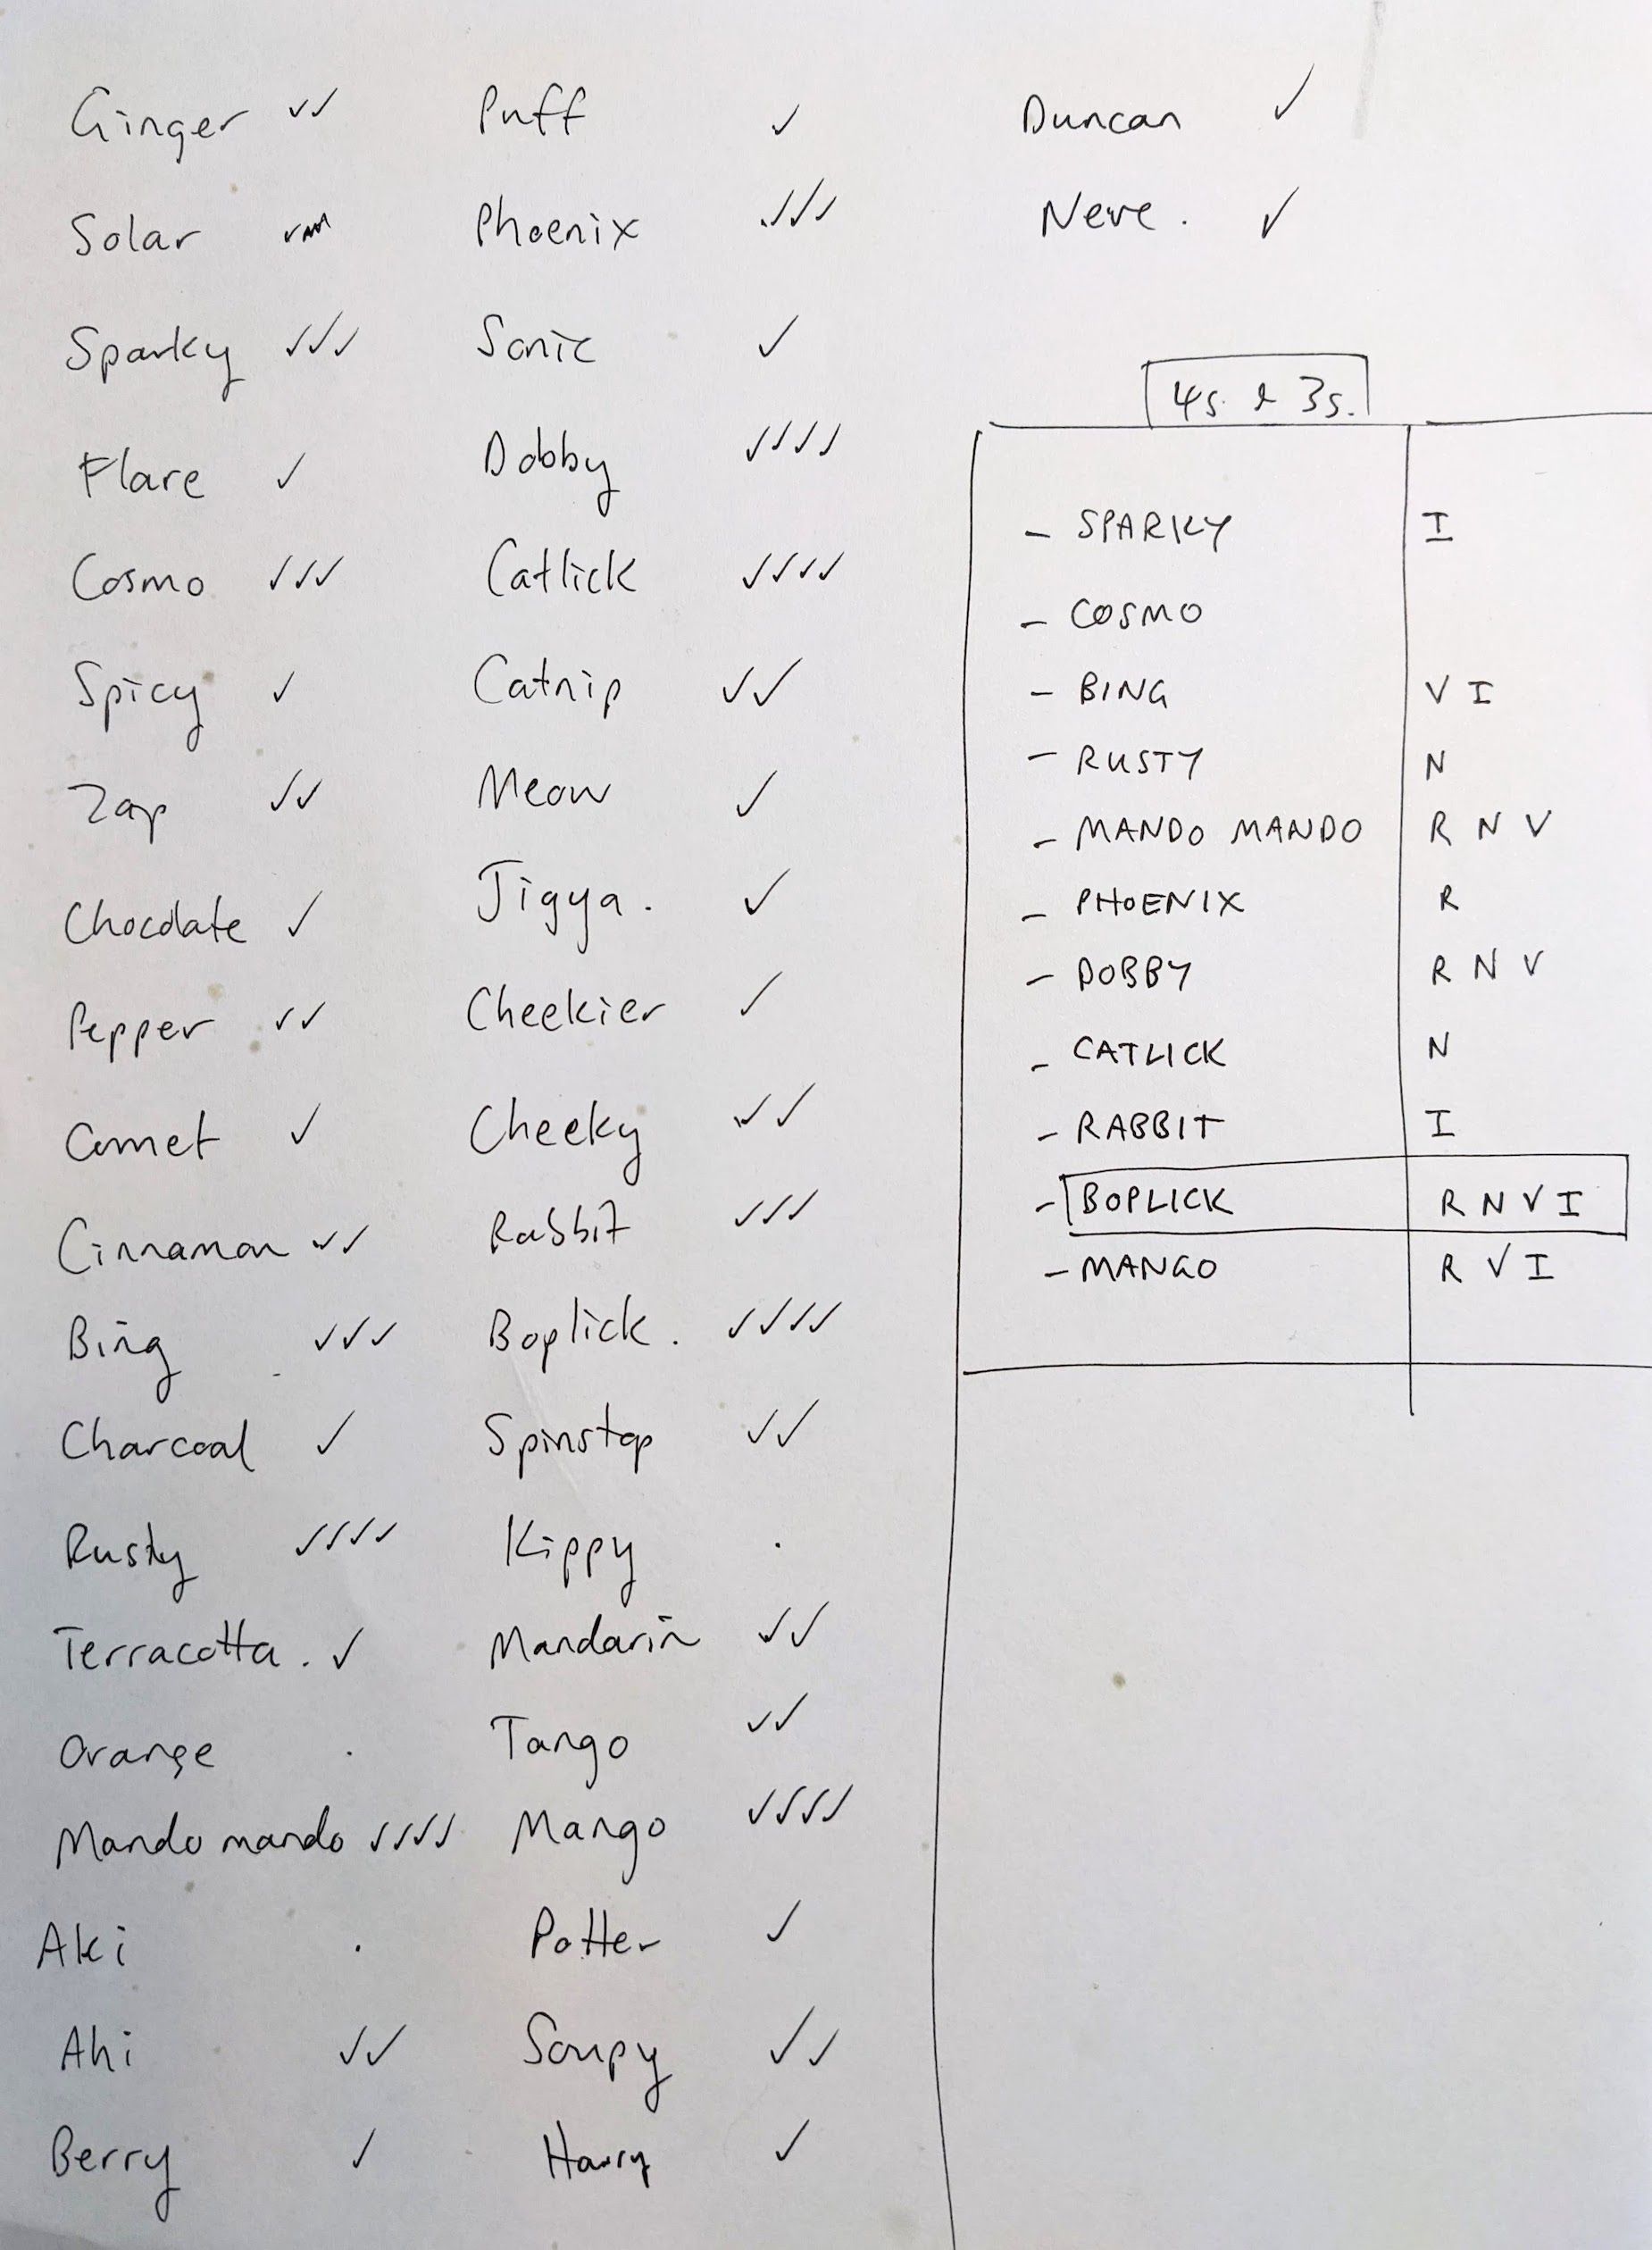 Ginger ✓✓
Solar
Sparky ✓✓✓
Flare ✓
Cosmo ✓✓✓
Spicy ✓
Zap ✓✓
Chocolate ✓
Pepper ✓✓
Comet ✓
Cinnamon ✓✓
Bing ✓✓✓
Charcoal ✓
Rusty ✓✓✓✓
Terracotta . ✓
Orange .
Mando mando ✓✓✓✓
Aki .
Ahi ✓✓
Berry ✓
Puff ✓
Phoenix ✓✓✓
Sonic ✓
Dobby ✓✓✓✓
Catlick ✓✓✓✓
Catnip ✓✓
Meow ✓
Jigya . ✓
Cheekier ✓
Cheeky ✓✓
Rabbit ✓✓✓
Boplick . ✓✓✓✓
Spinstop ✓✓
Kippy .
Mandarin ✓✓
Tango ✓✓
Mango ✓✓✓✓
Potter ✓
Soupy ✓✓
Harry ✓
Duncan ✓
Neve . ✓
4s & 3s.
- SPARKY I
- COSMO
- BING V I
- RUSTY N
- MANDO MANDO R N V
- PHOENIX R
- DOBBY R N V
- CATLICK N
- RABBIT I
- BOPLICK R N V I
- MANGO R V I